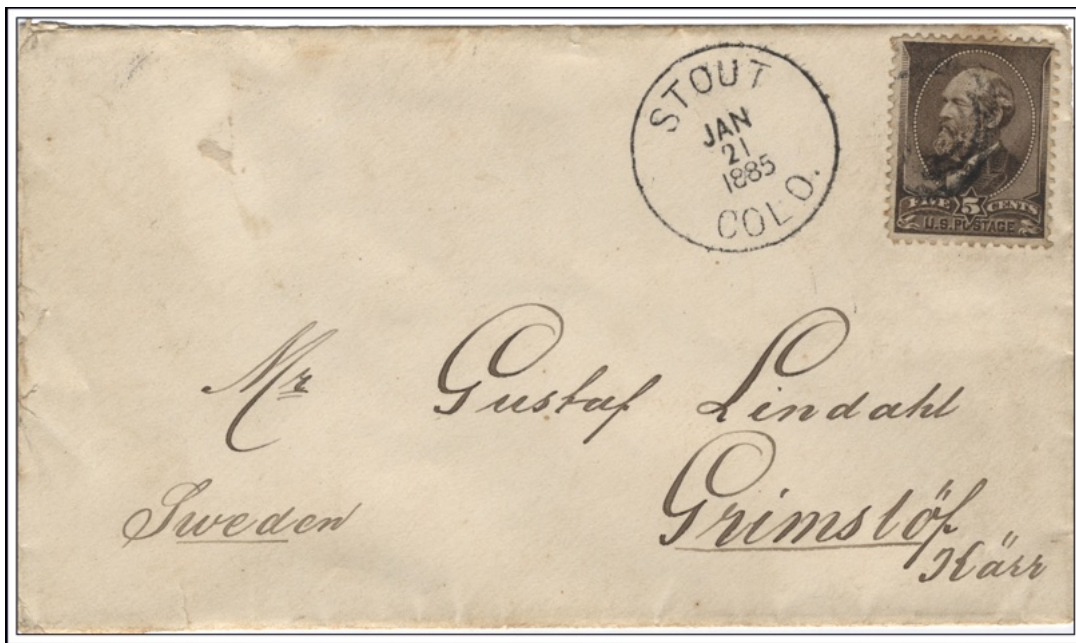 STOUT
JAN
21
1885
COLO.
FIVE 5 CENTS
U.S. POSTAGE
Mr Gustaf Lindahl
Sweden Grimslöf
Kärr